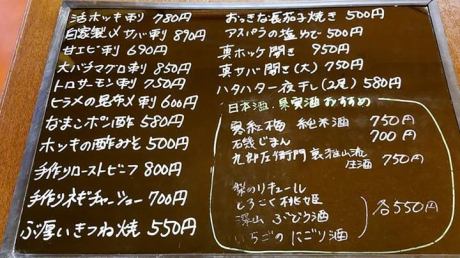 活ホッキ刺 780円
自家製〆サバ刺 890円
甘エビ刺 690円
大バチマグロ刺 850円
トロサーモン刺 750円
ヒラメの昆布〆刺 600円
なまこポン酢 580円
ホッキの酢みそ 500円
手作りローストビーフ 800円
手作りネギチャーシュー 700円
ぶ厚いきつね焼 550円
おっきな長茄子焼き 500円
アスパラの塩ゆで 500円
真ホッケ開き 950円
真サバ開き(大) 750円
ハタハタ一夜干し(2尾) 580円
日本酒・果実酒おすすめ
寒紅梅 純米酒 750円
石鎚じまん 700円
九郎左衛門 裏雅山流 生酒 750円
梨のリキュール
とろこく桃姫
深山ぶどう酒
いちごのにごり酒
各550円